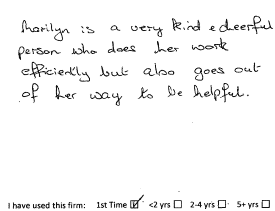 Marilyn is a very kind & cheerful
person who does her work
efficiently but also goes out
of her way to be helpful.
I have used this firm: 1st Time ☑ <2 yrs ☐ 2-4 yrs ☐ 5+ yrs ☐